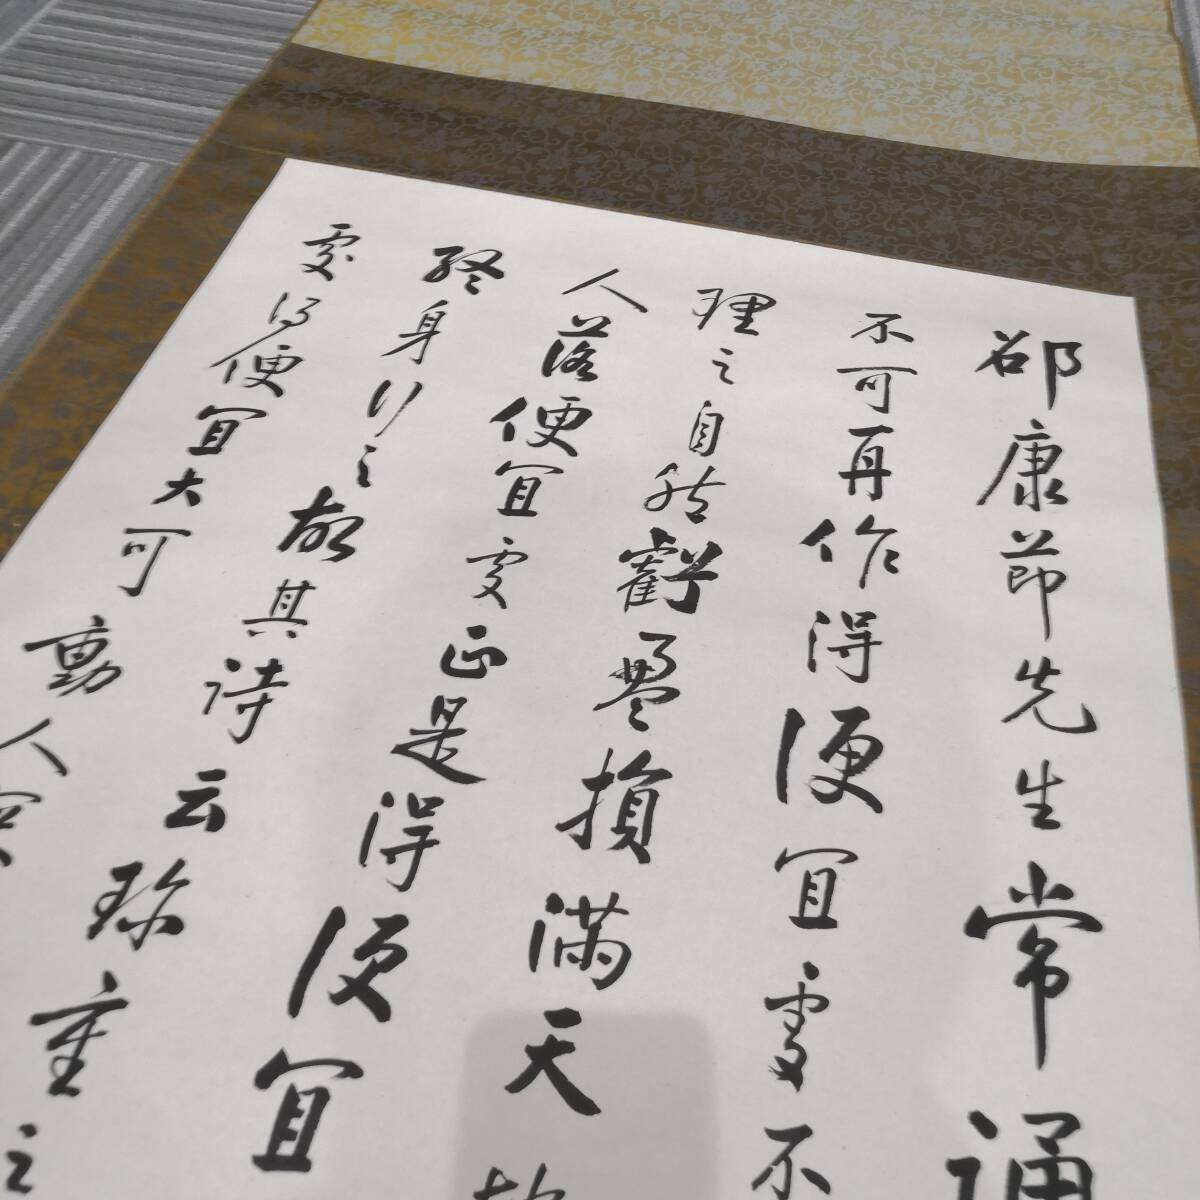 邵康節先生常誦
不可再作得便宜處不
理之自然虧盈損滿天
人落便宜處正是得便宜
終身行之故其詩云珎重之
處得便宜大可動人